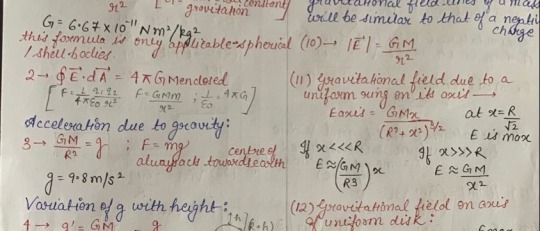 r²
constant]
gravitation
G = 6.67 × 10⁻¹¹ Nm²/kg²
this formula is only applicable-spherical
/shell-bodies.
2 → ∮ E⃗.dA⃗ = 4πGMenclosed
[F = 1/4πε₀ q₁q₂/r² F = GMm/r² ; 1/ε₀ = 4πG]
Acceleration due to gravity:
3 → GM/R² = g ; F = mg
always acts towards centre of earth
g = 9.8 m/s²
Variation of g with height:
4 → g' = GM g
gravitational field lines of a mass
will be similar to that of a negative
charge
(10) → |E⃗| = GM/r²
(11) Gravitational field due to a
uniform ring on its axis →
Eaxis = GMx/(R²+x²)^3/2 at x = R/√2
E is max
If x<<<R If x>>>R
E ≈ (GM/R³)x E ≈ GM/x²
(12) Gravitational field on axis
of uniform disk: